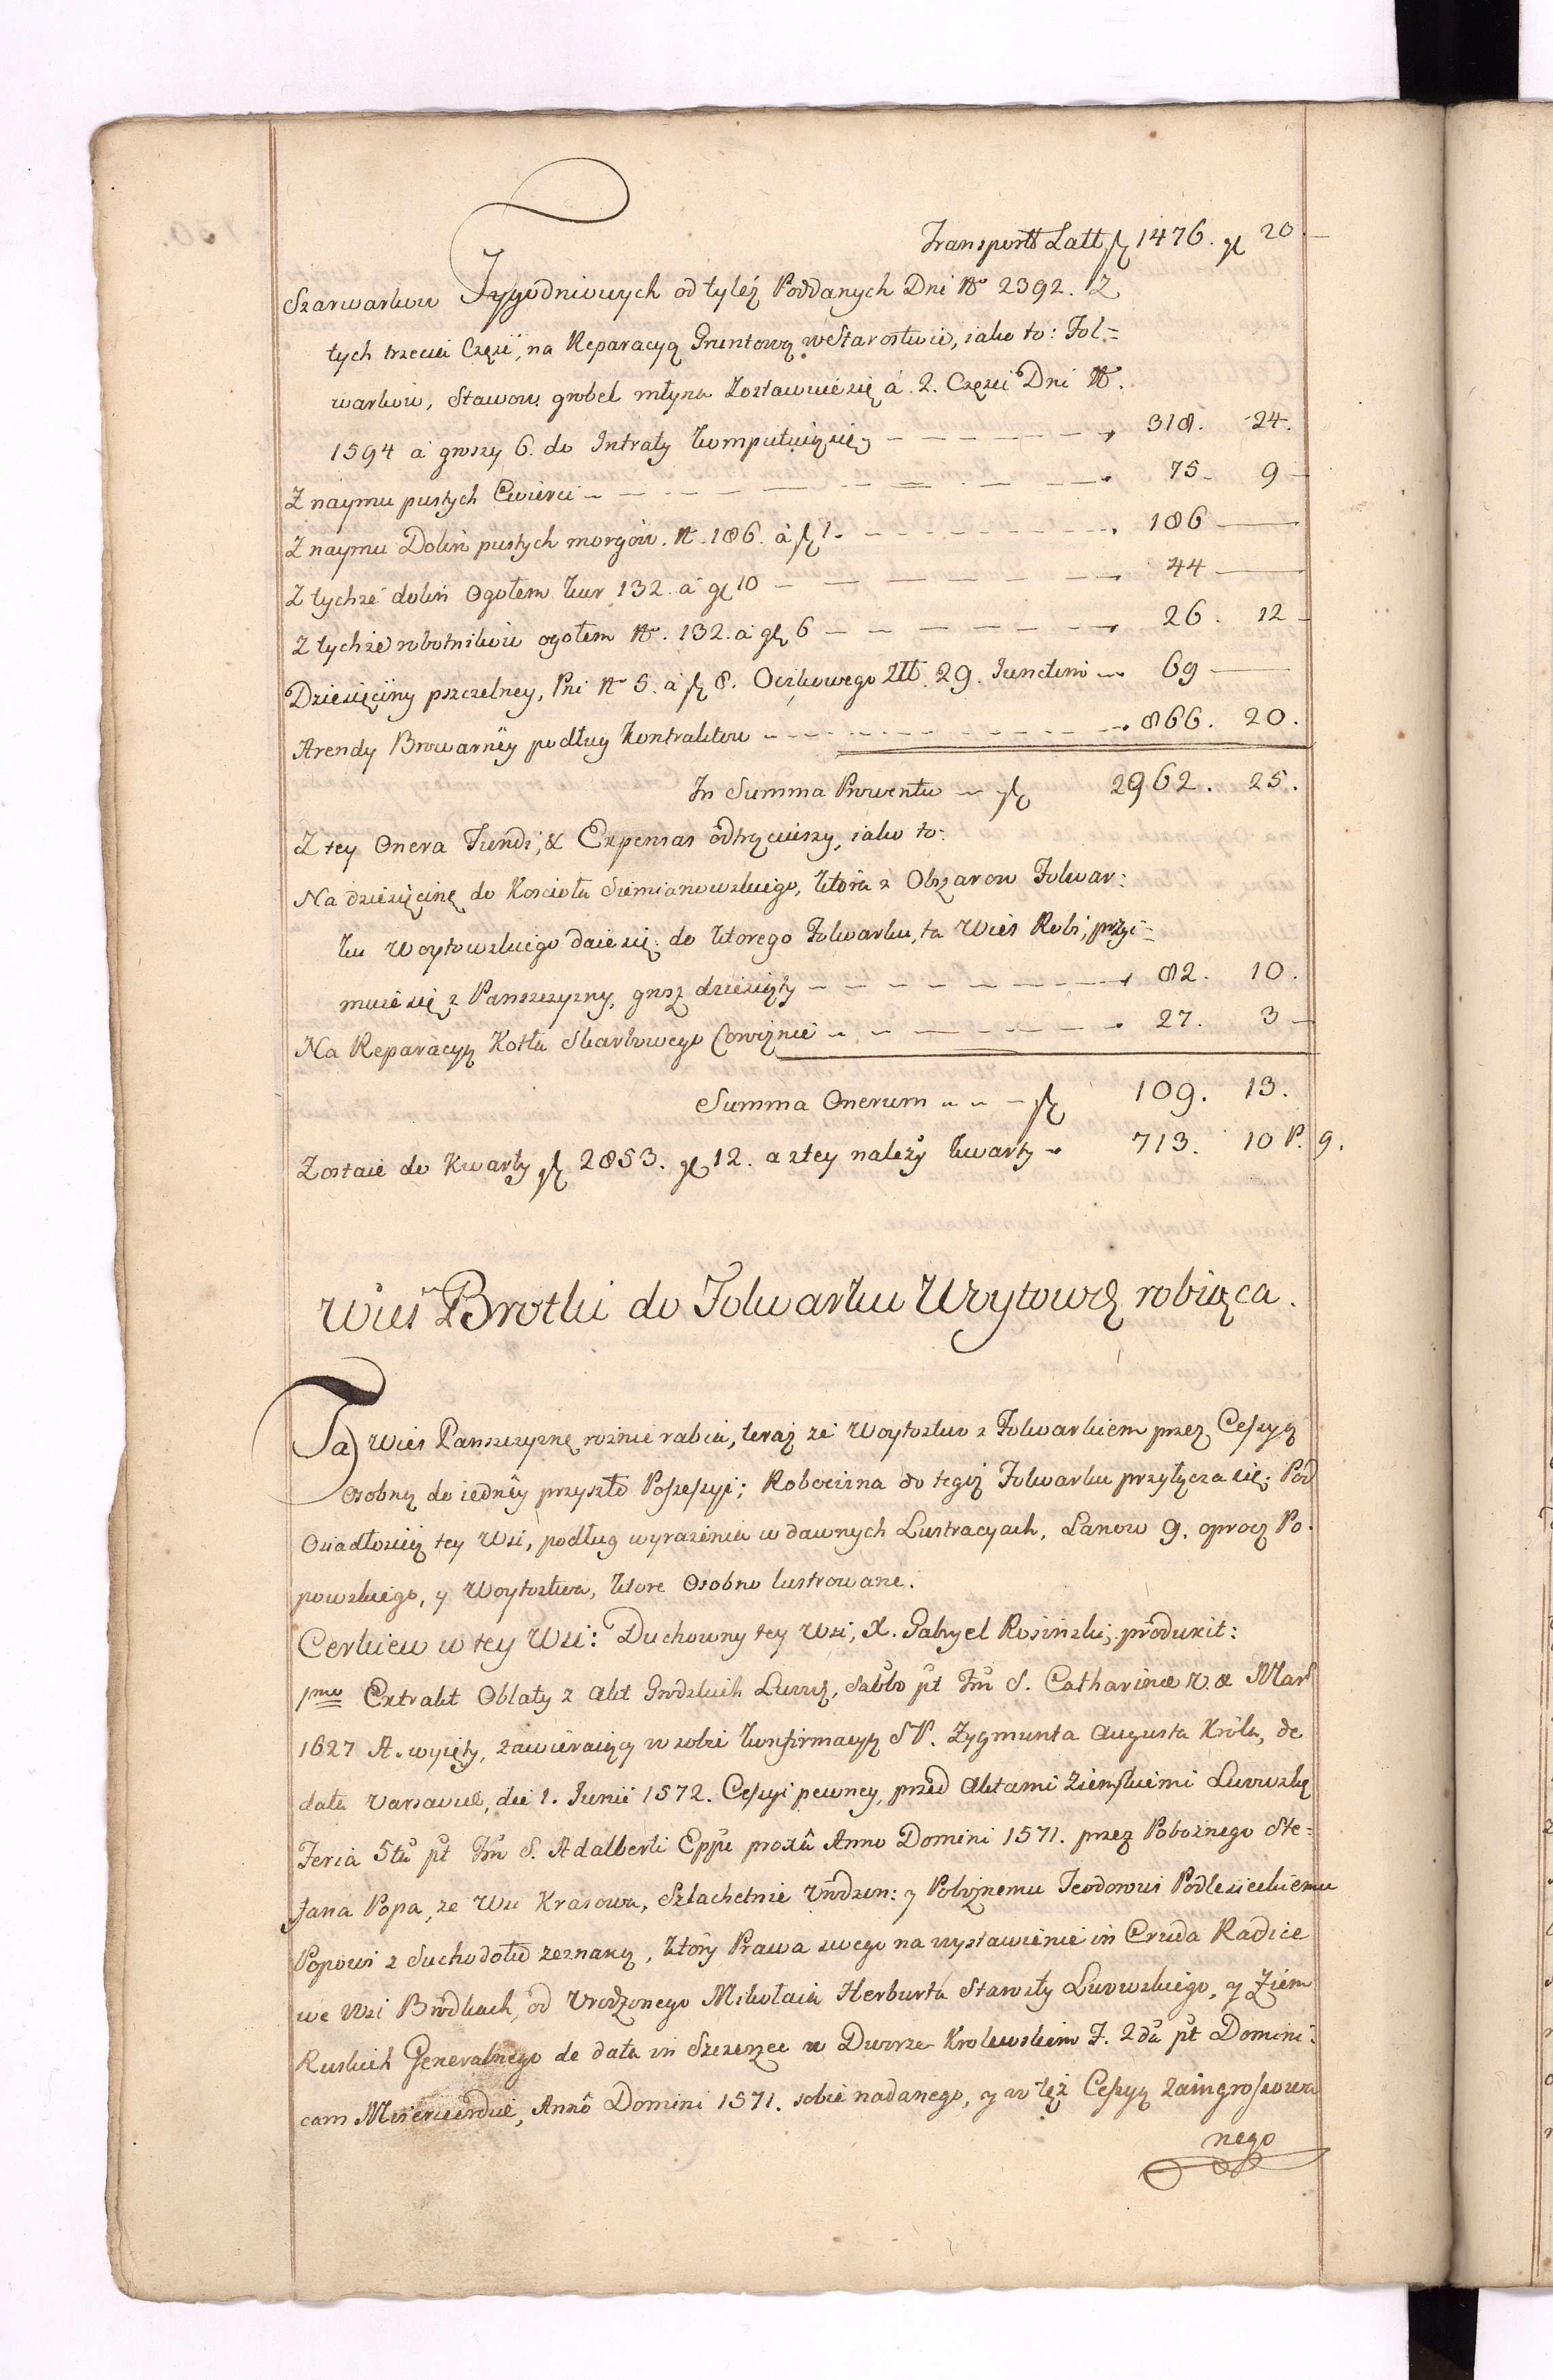 Transport Latt. fl 1476. gl 20.
Szarwarkow Tygodniowych od tyleż Poddanych Dni No 2392. Z
tych trzecia Częsć, na Reparacyą Gruntową w Starostwie, iako to: Fol=
warkow, Stawow, grobel młyna zostawuie się á 2. Części Dni No.
1594 á groszy 6. do Intraty komputuią się, — 318. 24.
Z naymu pustych Cwierci — 75. 9
Z naymu Dolin pustych morgów. N. 186. á fl 1. — 186 —
Z tychże dolin Ogołem kur 132. á gl 10 — 44 —
Z tychże robotników ogołem No. 132. á gl 6 — 26. 12
Dziesięciny pszczelney, Pni No 5. á fl 8. Oczkowego Ul. 29. Junctim — 69 —
Arendy Browarney podług Kontraktow — 866. 20.
In Summa Prowentu — fl 2962. 25.
Z tey Onera Fundi, & Expensas odtrąciwszy, iako to:
Na dziesięcinę do Kościoła Siemianowskiego, ktora z Obszarow Folwar:
ku Woytowskiego daie się, do ktorego Folwarku, ta Wieś Robi, przyi=
muie się z Panszczyzny, grosz dziesiąty — 82. 10.
Na Reparacyą Kotła Skarbowego Corocznie — 27. 3
Summa Onerum — fl 109. 13.
Zostaie do Kwarty fl 2853. gl 12. a z tey należy kwarty 713. 10 P. 9.
Wieś Brotki do Folwarku Woytowę robiąca.
Ta Wieś Panszczyznę rożnie rabia, teraz że Woytostwo z Folwarkiem przez Cessyą
Osobną do iedney przyszło Possessyi; Robocizna do tegoż Folwarku przyłącza się; Pod
Osiadłością tey Wsi, podług wyrażenia w dawnych Lustracyach, Lanow 9. oprocz Po=
powskiego, y Woytostwa, ktore Osobno lustrowane.
Cerkiew w tey Wsi: Duchowny tey Wsi, X. Gabryel Rosiński, produxit:
pmo Extrakt Oblaty z Akt Grodzkich Lwow, Sabbo pt Fm S. Catharinæ V. & Mart
1627 A. wyięty, zawieraiący w sobie konfirmacyą SP. Zygmunta Augusta Króla, de
data Varsaviæ, die 1. Junii 1572. Cessyi pewney, przed Aktami Ziemskiemi Lwowskie
Feria 5ta pt Fm S. Adalberti Eppi proxa Anno Domini 1571. przez Pobożnego Ste=
fana Popa, ze Wsi Krasowa, Szlachetnie Urodzon: y Pobożnemu Teodorowi Podlesieckiemu
Popowi z Suchodołu zeznaną, ktory Prawa swego na wystawienie in Cruda Radice
we Wsi Brodkach, od Urodzonego Mikołaia Herburta Starosty Lwowskiego, y Ziem
Ruskich Generalnego de data in Szczerzec w Dworze Krolewskim F. 2da pt Domini=
cam Misericordiæ, Anno Domini 1571. sobie nadanego, y w tęż Cessyą zaingrossowa
nego